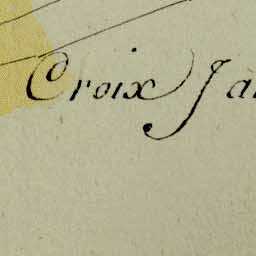 Croix Ja